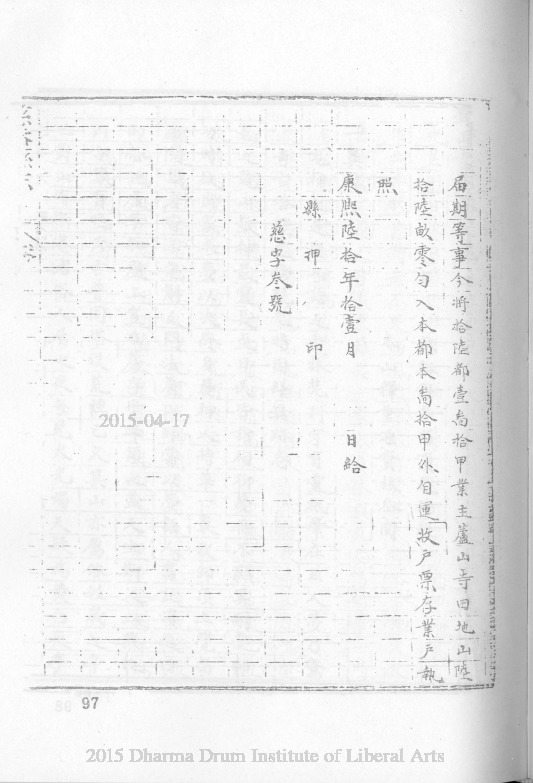 届期等事今將拾陸都壹啚拾甲業主蘆山寺田地山陸
拾陸畝零勻入本都本啚拾甲外自運收戶票存業戶執
照
康熙陸拾年拾壹月 日給
縣 押 印
慈字叁號
2015-04-17
97
2015 Dharma Drum Institute of Liberal Arts